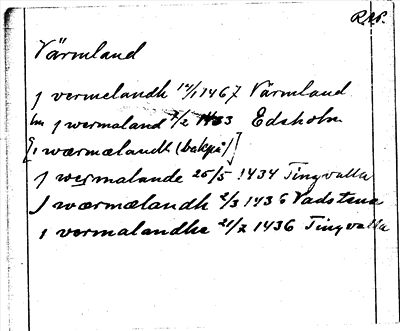 R.A.P.
Värmland
j vermelandh 12/1 1467 Värmland
j wermaland 7/2 1433 Edsholm
[i wærmælandh (bakpå)]
j wermalande 25/5 1434 Tingvalla
J wærmælandh 2/3 1436 Vadstena
i vermalandhe 21/7 1436 Tingvalla